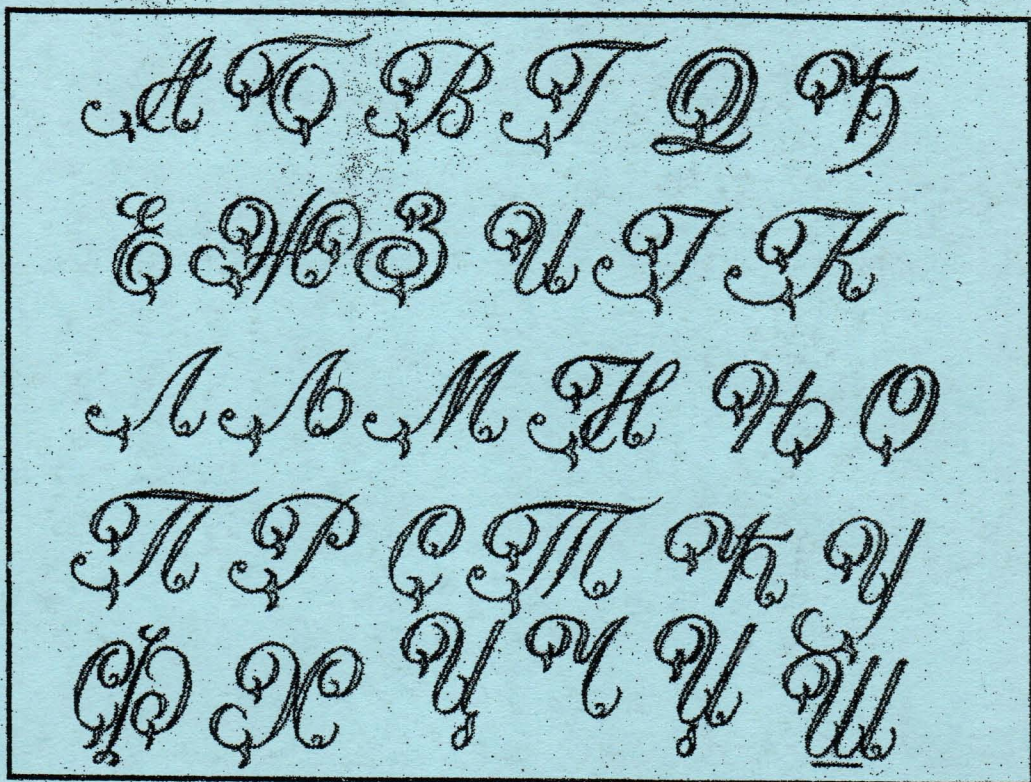 А Б В Г Д Ђ
Е Ж З И Ј К
Л Љ М Н Њ О
П Р С Т Ћ У
Ф Х Ц Ч Џ Ш